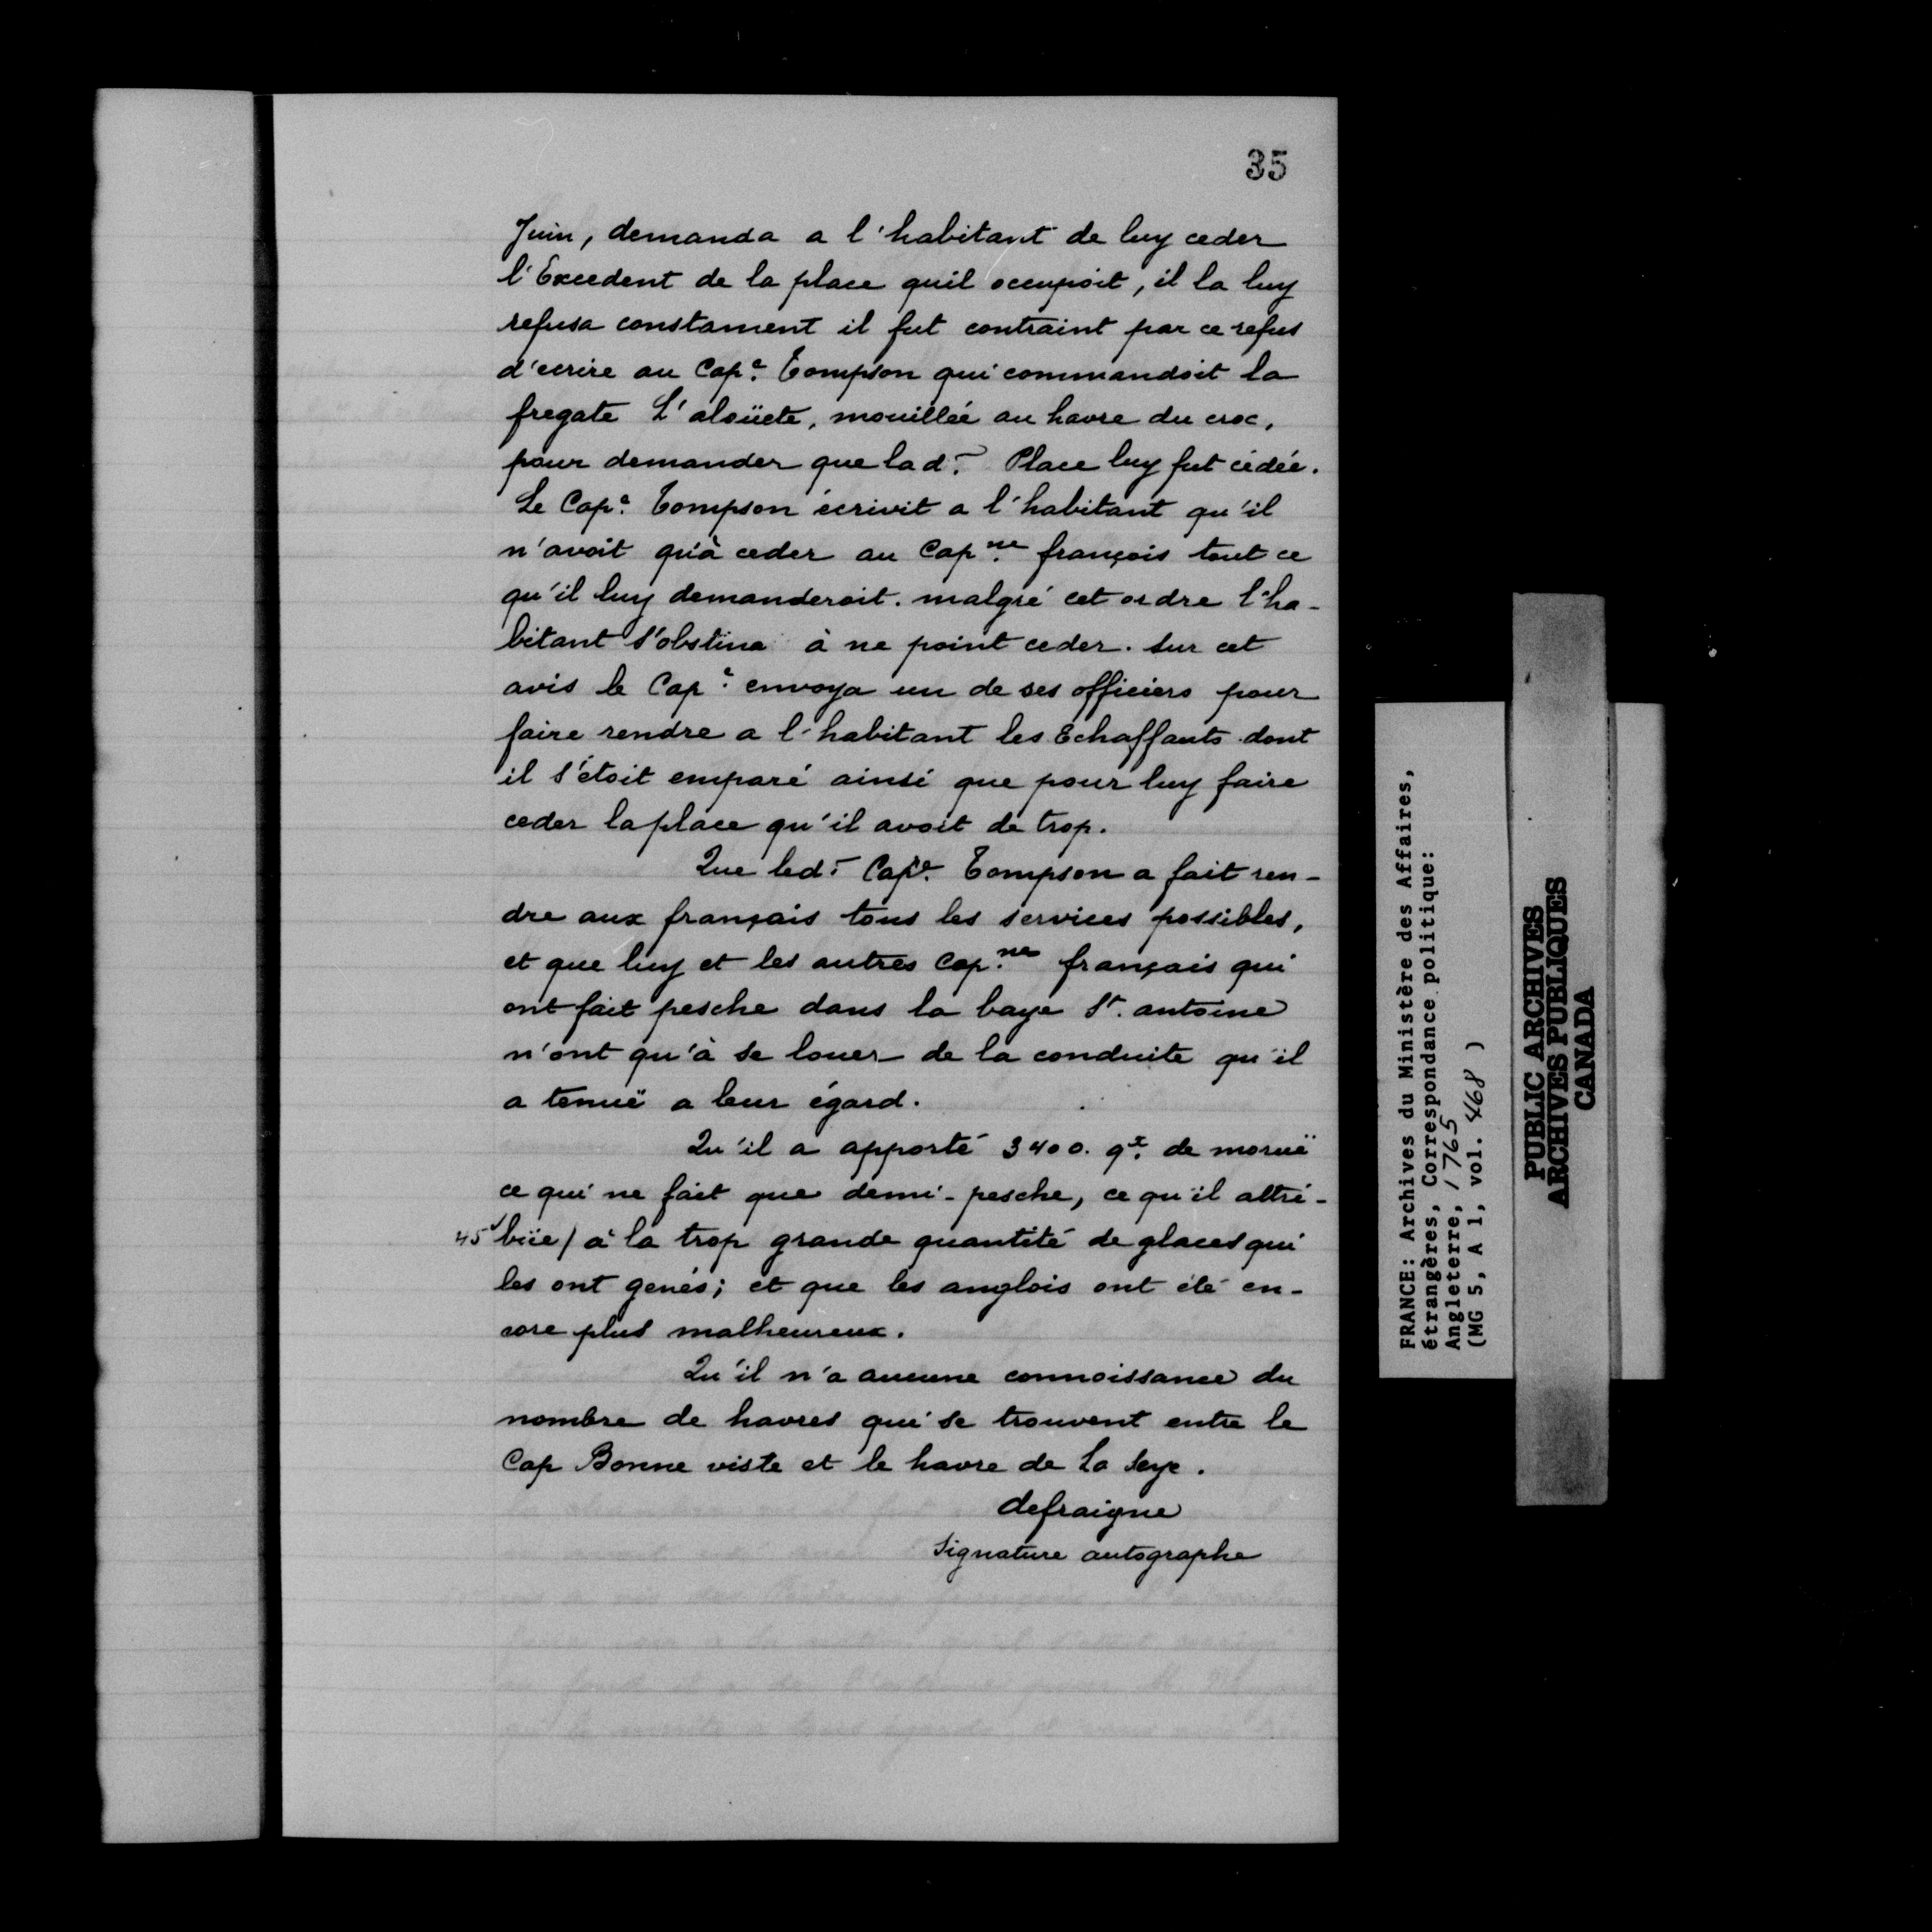 35
Juin, demanda a l'habitant de luy ceder
l'Excedent de la place quil occupoit, il la luy
refusa constament il fut contraint par ce refus
d'ecrire au Cap.e Tompson qui commandoit la
fregate L'aloüete, mouillée au havre du croc,
pour demander que lad. Place luy fut cédée.
Le Cap.e Tompson écrivit a l'habitant qu'il
n'avoit qu'à ceder au Cap.ne françois tout ce
qu'il luy demanderoit. malgré cet ordre l'ha-
bitant s'obstina à ne point ceder. sur cet
avis le Cap.e envoya un de ses officiers pour
faire rendre a l'habitant les Echaffauts dont
il s'étoit emparé ainsi que pour luy faire
ceder la place qu'il avoit de trop.
Que led. Cap.e Tompson a fait ren-
dre aux français tous les services possibles,
et que luy et les autres Cap.nes français qui
ont fait pesche dans la baye St. antoine
n'ont qu'à se louer de la conduite qu'il
a tenuë a leur égard.
Qu'il a apporté 3400. qx. de moruë
ce qui ne fait que demi-pesche, ce qu'il attri-
45 büe/ à la trop grande quantité de glaces qui
les ont genés; et que les anglois ont été en-
core plus malheureux.
Qu'il n'a aucune connoissance du
nombre de havres qui se trouvent entre le
Cap Bonne viste et le havre de La Seye.
defraigne
Signature autographe
FRANCE: Archives du Ministère des Affaires,
étrangères, Correspondance politique:
Angleterre, 1765
(MG 5, A 1, vol. 468 )
PUBLIC ARCHIVES
ARCHIVES PUBLIQUES
CANADA